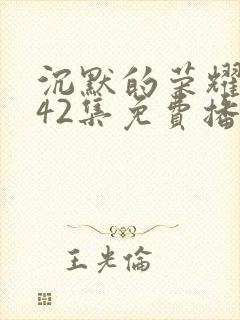 沉默的荣耀
42集免費播
王光倫